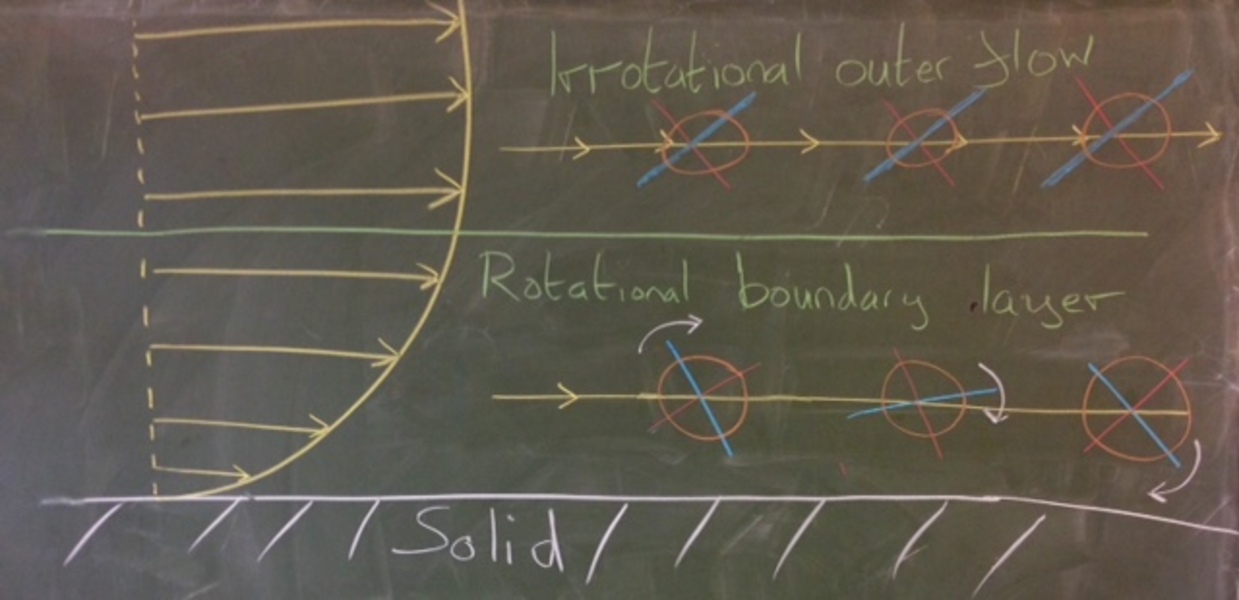 Irrotational outer flow
Rotational boundary layer
Solid